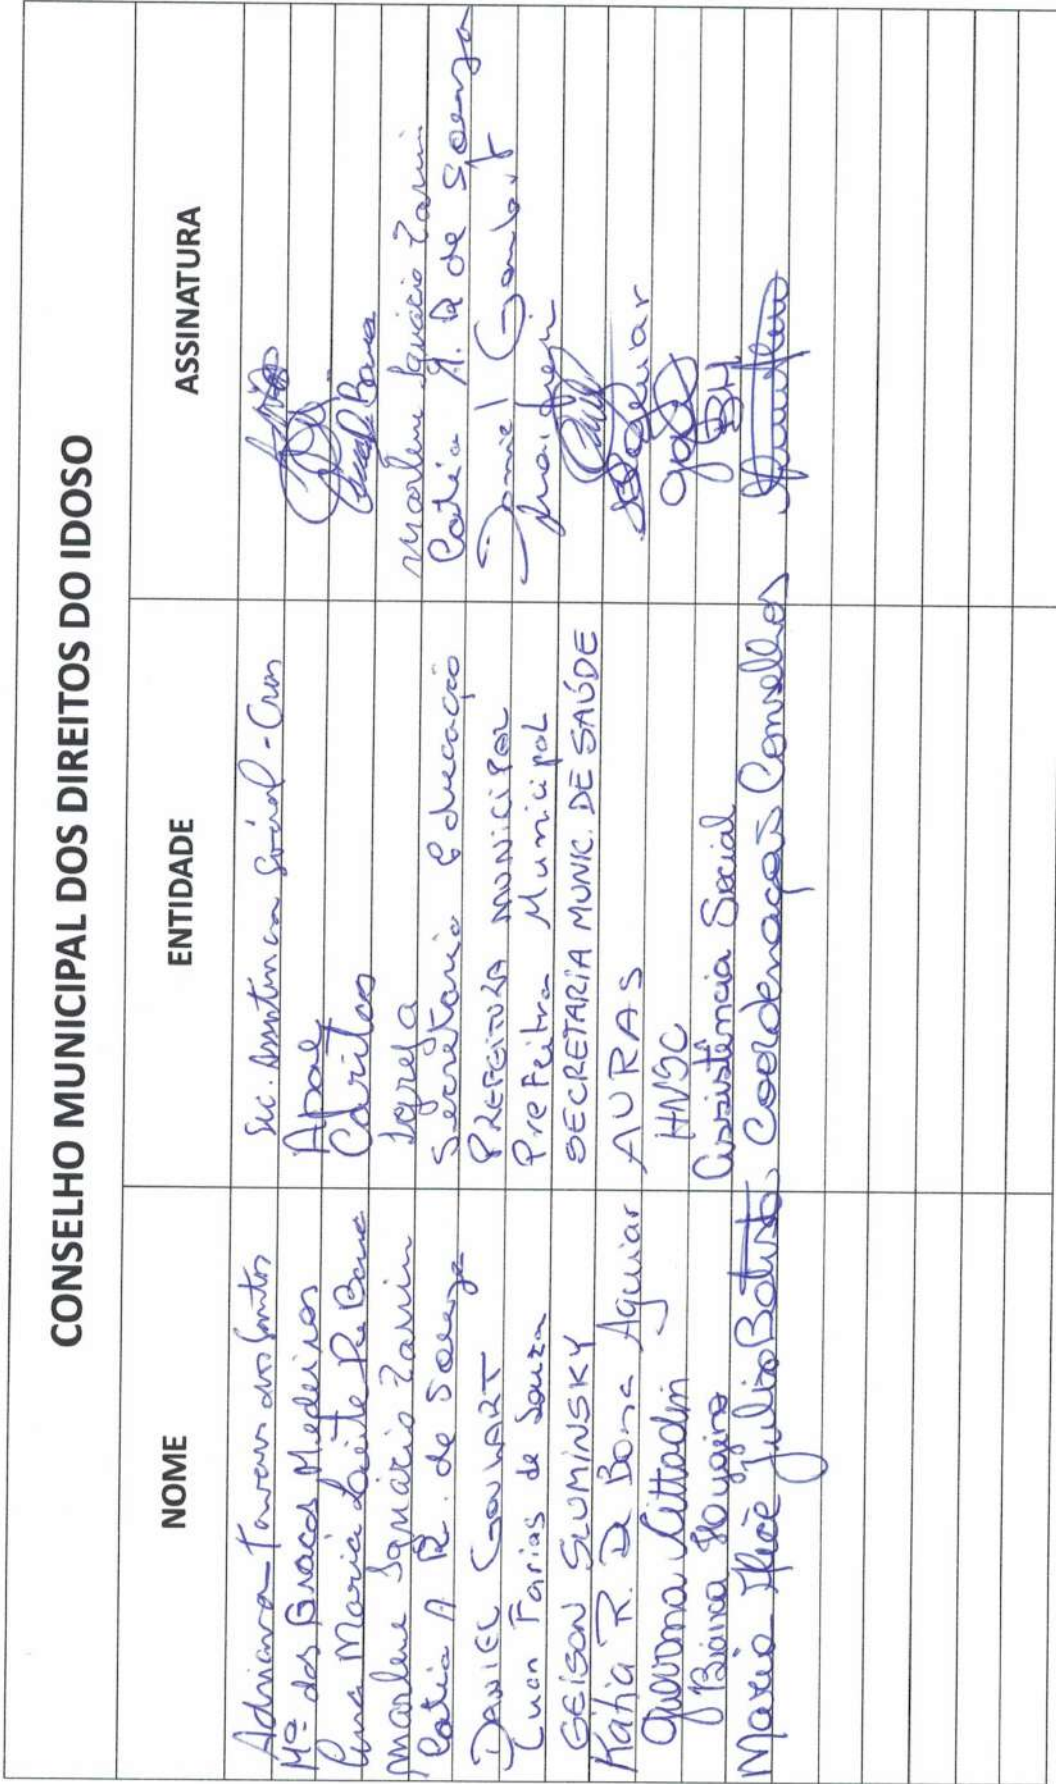 CONSELHO MUNICIPAL DOS DIREITOS DO IDOSO
NOME ENTIDADE ASSINATURA
Adriana Tavares dos Santos Sec. Assistencia Social - Cras
Mª das Graças Medeiros Apae
Ana Maria Leite De Bona Caritas
Marlene Ignácio Zanin Igreja Marlene Ignácio Zanin
Catia A R. de Souza Secretaria Educação Catia A. R de Souza
DANIEL GOULART PREFEITURA MUNICIPAL Daniel Goulart
Luan Farias de Souza Prefeitura Municipal
GEISON SLUMINSKY SECRETARIA MUNIC. DE SAÚDE
Katia R. De Bona Aguiar AURAS Aguiar
Giovana Cittadin HNSC
Bianca Assistência Social BH
Maria Julio Batista Coordenação Conselhos